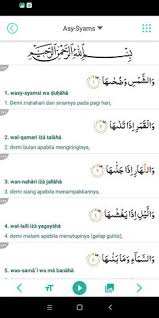 Asy-Syams
بِسْمِ اللَّهِ الرَّحْمَٰنِ الرَّحِيمِ
وَالشَّمْسِ وَضُحٰىهَا
1. wasy-syamsi wa ḍuḥāhā
1. Demi matahari dan sinarnya pada pagi hari,
وَالْقَمَرِ اِذَا تَلٰىهَا
2. wal-qamari iżā talāhā
2. demi bulan apabila mengiringinya,
وَالنَّهَارِ اِذَا جَلّٰىهَا
3. wan-nahāri iżā jallāhā
3. demi siang apabila menampakkannya,
وَالَّيْلِ اِذَا يَغْشٰىهَا
4. wal-laili iżā yagsyāhā
4. demi malam apabila menutupinya (gelap gulita),
وَالسَّمَاۤءِ وَمَا بَنٰىهَا
5. was-samā`i wa mā banāhā